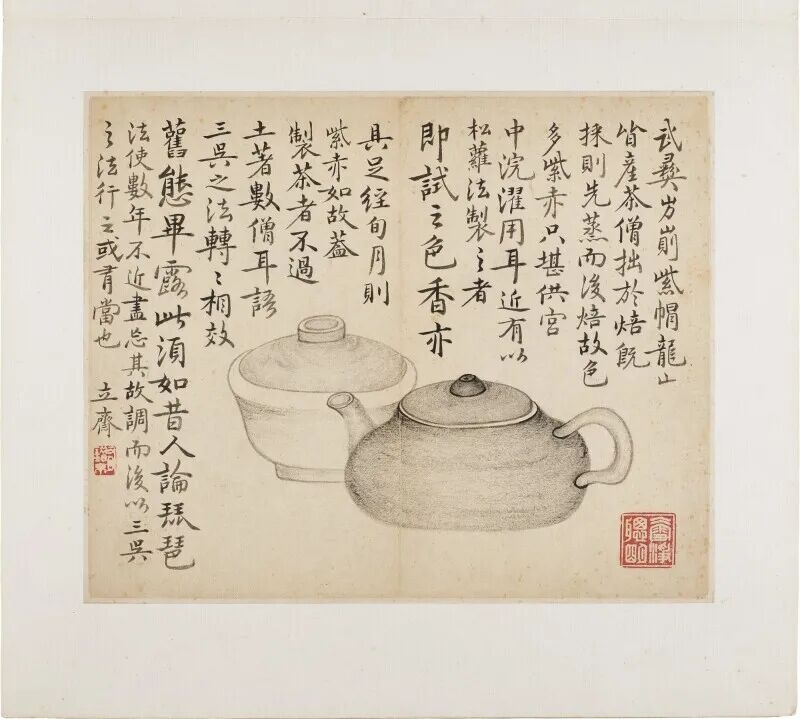 武彝屴崱紫帽龍山
皆產茶僧拙於焙既
採則先蒸而後焙故色
多紫赤只堪供宮
中浣濯用耳近有以
松蘿法製之者
即試之色香亦
具足經旬月則
紫赤如故葢
製茶者不過
土著數僧耳語
三吳之法轉〻相效
舊態畢露此須如昔人論琵琶
法使數年不近盡忘其故調而後以三吳
之法行之或有當也 立齋